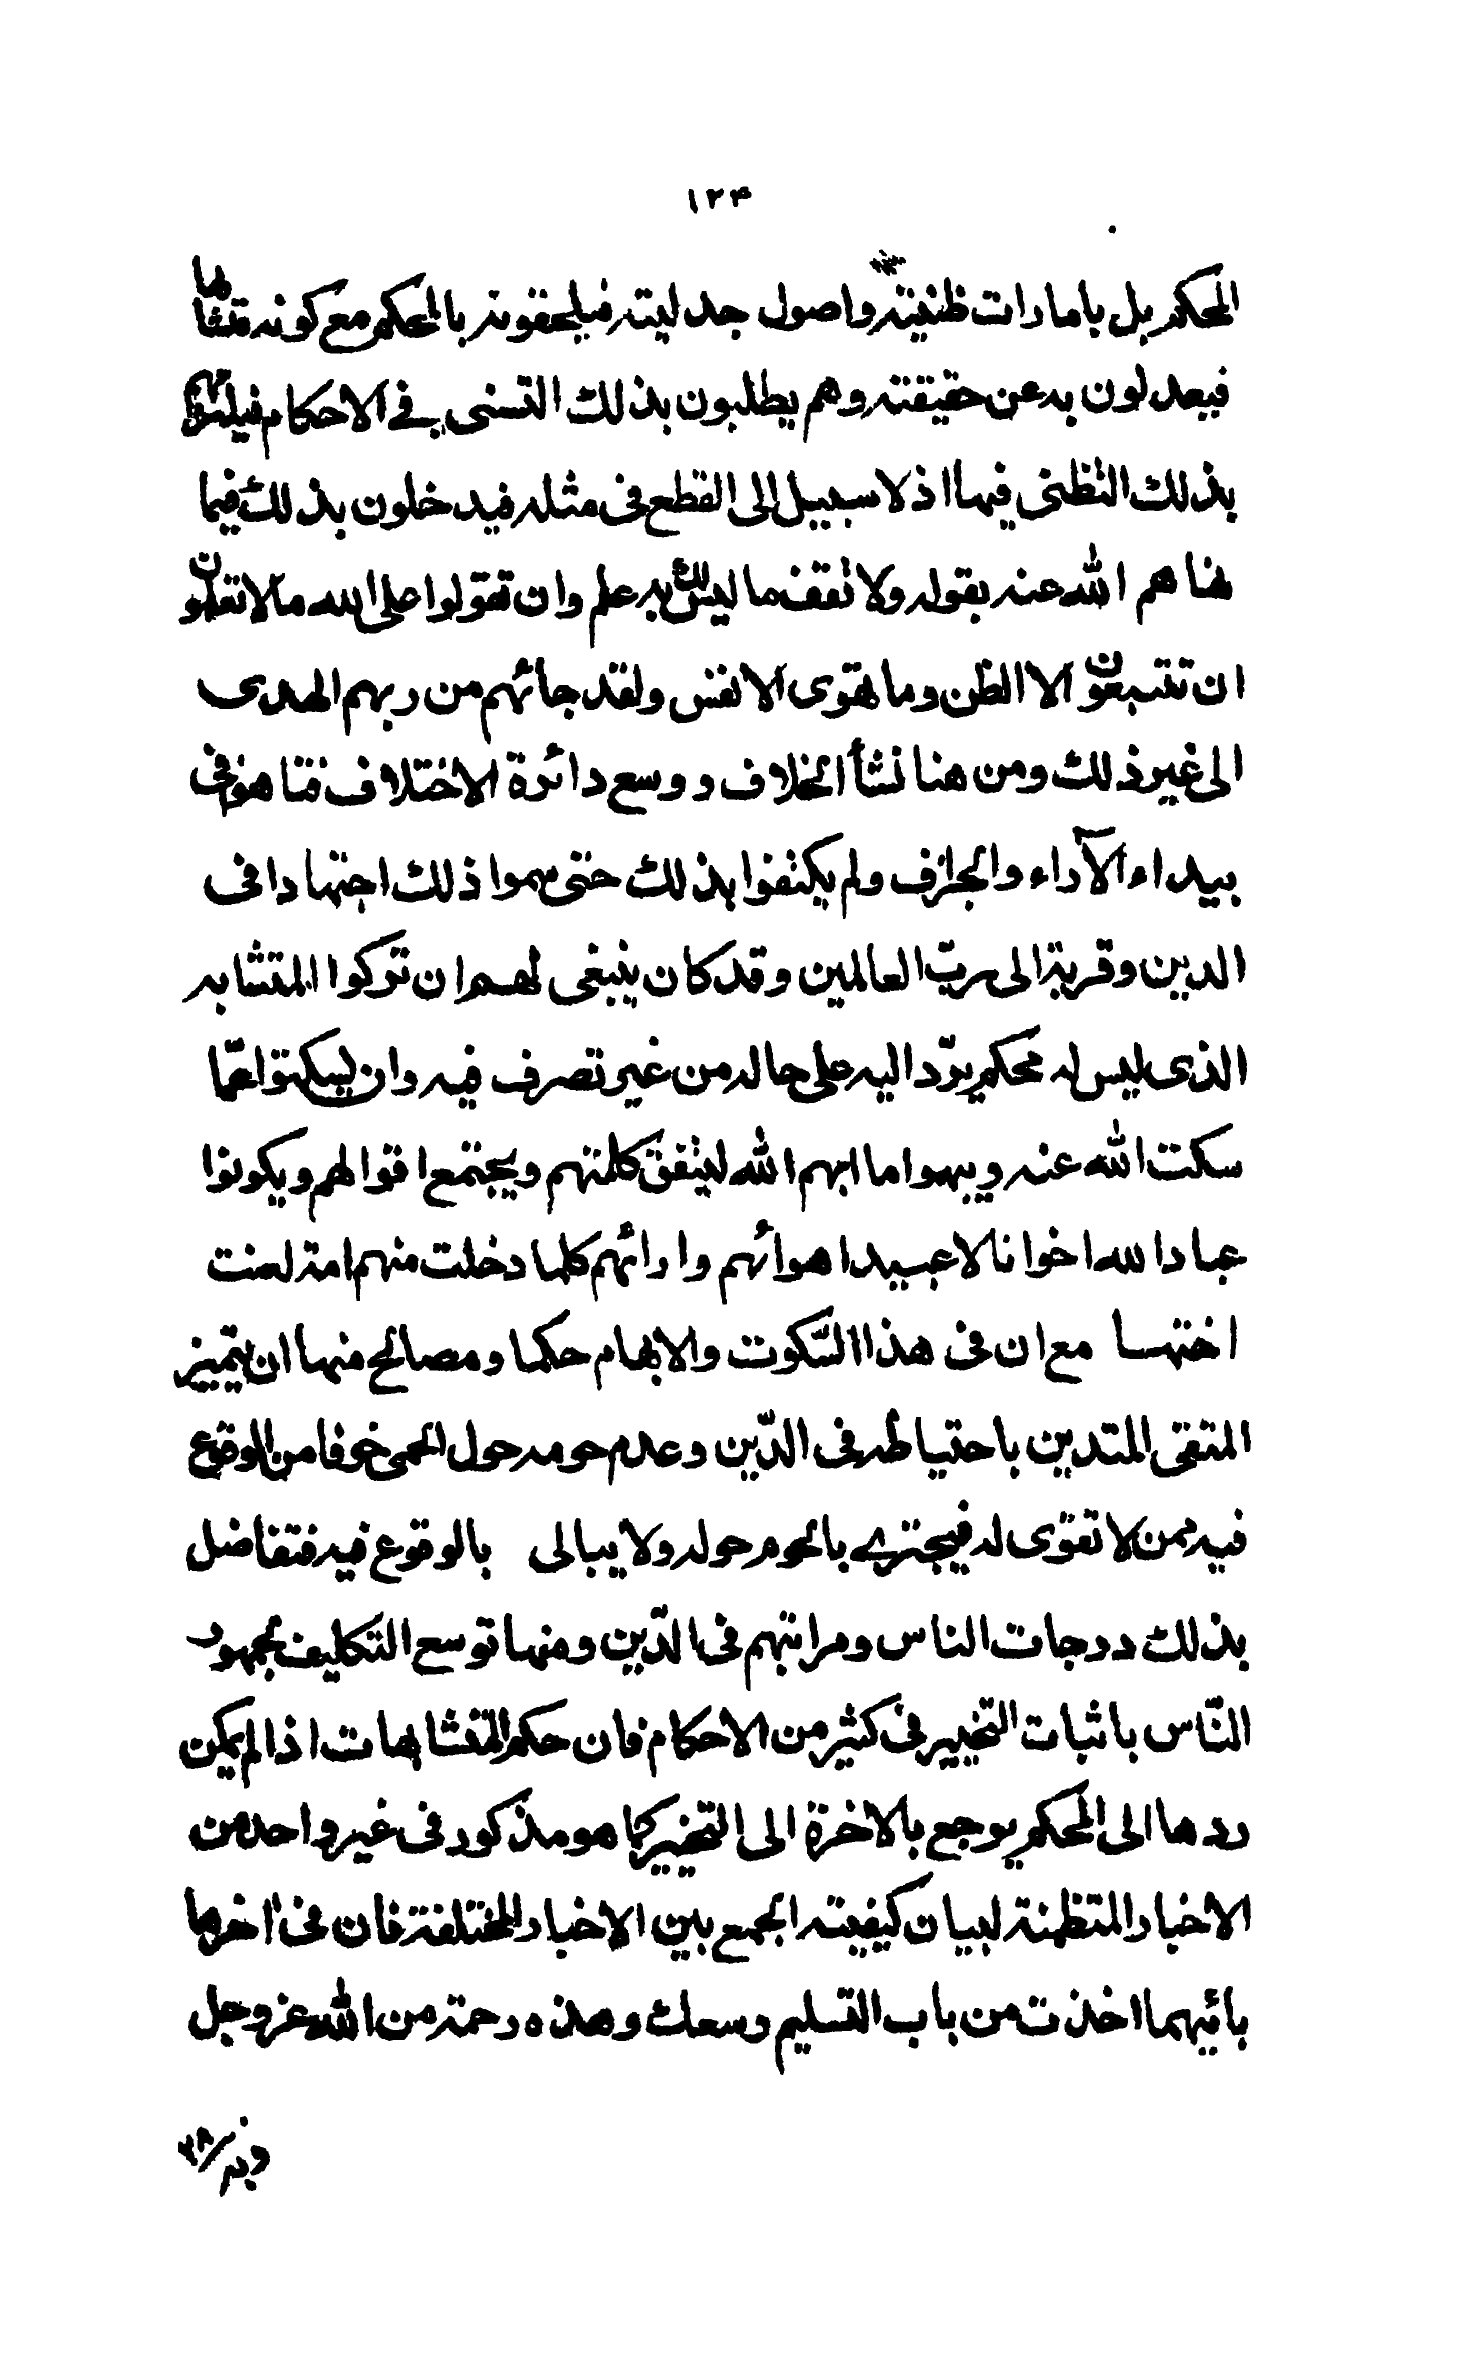 ۱۲۴
المحكم بل بامارات ظنية واصول جدلية فيلحقونه بالمحكم مع كونه متشابها
فيعدلون به عن حقيقته وهم يطلبون بذلك التسنى فى الاحكام فيلزمهم
بذلك التظنى فيها اذ لا سبيل الى القطع فى مثله فيدخلون بذلك فيما
نهاهم الله عنه بقوله ولا تقف ما ليس لك به علم وان تقولوا على الله ما لا تعلمون
ان تتبعون الا الظن وما تهوى الانفس ولقد جائهم من ربهم الهدى
الى غير ذلك ومن هنا نشأ الخلاف ووسع دائرة الاختلاف فتاهوا فى
بيداء الآراء والجزاف ولم يكتفوا بذلك حتى سموا ذلك اجتهادا فى
الدين وقربة الى ربّ العالمين وقد كان ينبغى لهم ان تركوا المتشابه
الذى ليس له محكم يردّ اليه على حاله من غير تصرف فيه وان يسكتوا عمّا
سكت الله عنه ويبهموا ما ابهم الله ليتفق كلمتهم ويجتمع اقوالهم ويكونوا
عباد الله اخوانا لا عبيد اهوائهم وارائهم كلما دخلت منهم امة لعنت
اختها مع ان فى هذا السّكوت والابهام حكما ومصالح منها ان يتميز
المتقى المتدين باحتياطه فى الدّين وعدم حومه حول الحمى خوفا من الوقوع
فيه ممن لا تقوى له فيجترى بالحوم حوله ولا يبالى بالوقوع فيه فتفاضل
بذلك درجات الناس ومراتبهم فى الدّين ومنها توسع التكليف بجمهور
النّاس باثبات التخيير فى كثير من الاحكام فان حكم المتشابهات اذا لم يمكن
ردها الى المحكم يرجع بالاخرة الى التخيير كما هو مذكور فى غير واحد من
الاخبار المتظمنة لبيان كيفية الجمع بين الاخبار المختلفة فان فى اخرها
بائيهما اخذت من باب التسليم وسعك وهذه رحمة من الله عز وجل